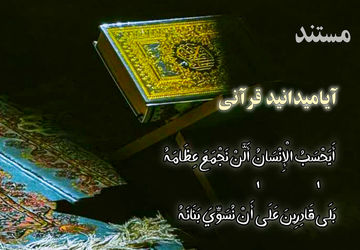 مستند
آیامیدانید قرآنی
أَيَحْسَبُ الْإِنْسَانُ أَلَّنْ نَجْمَعَ عِظَامَهُ
بَلَى قَادِرِينَ عَلَى أَنْ نُسَوِّيَ بَنَانَهُ